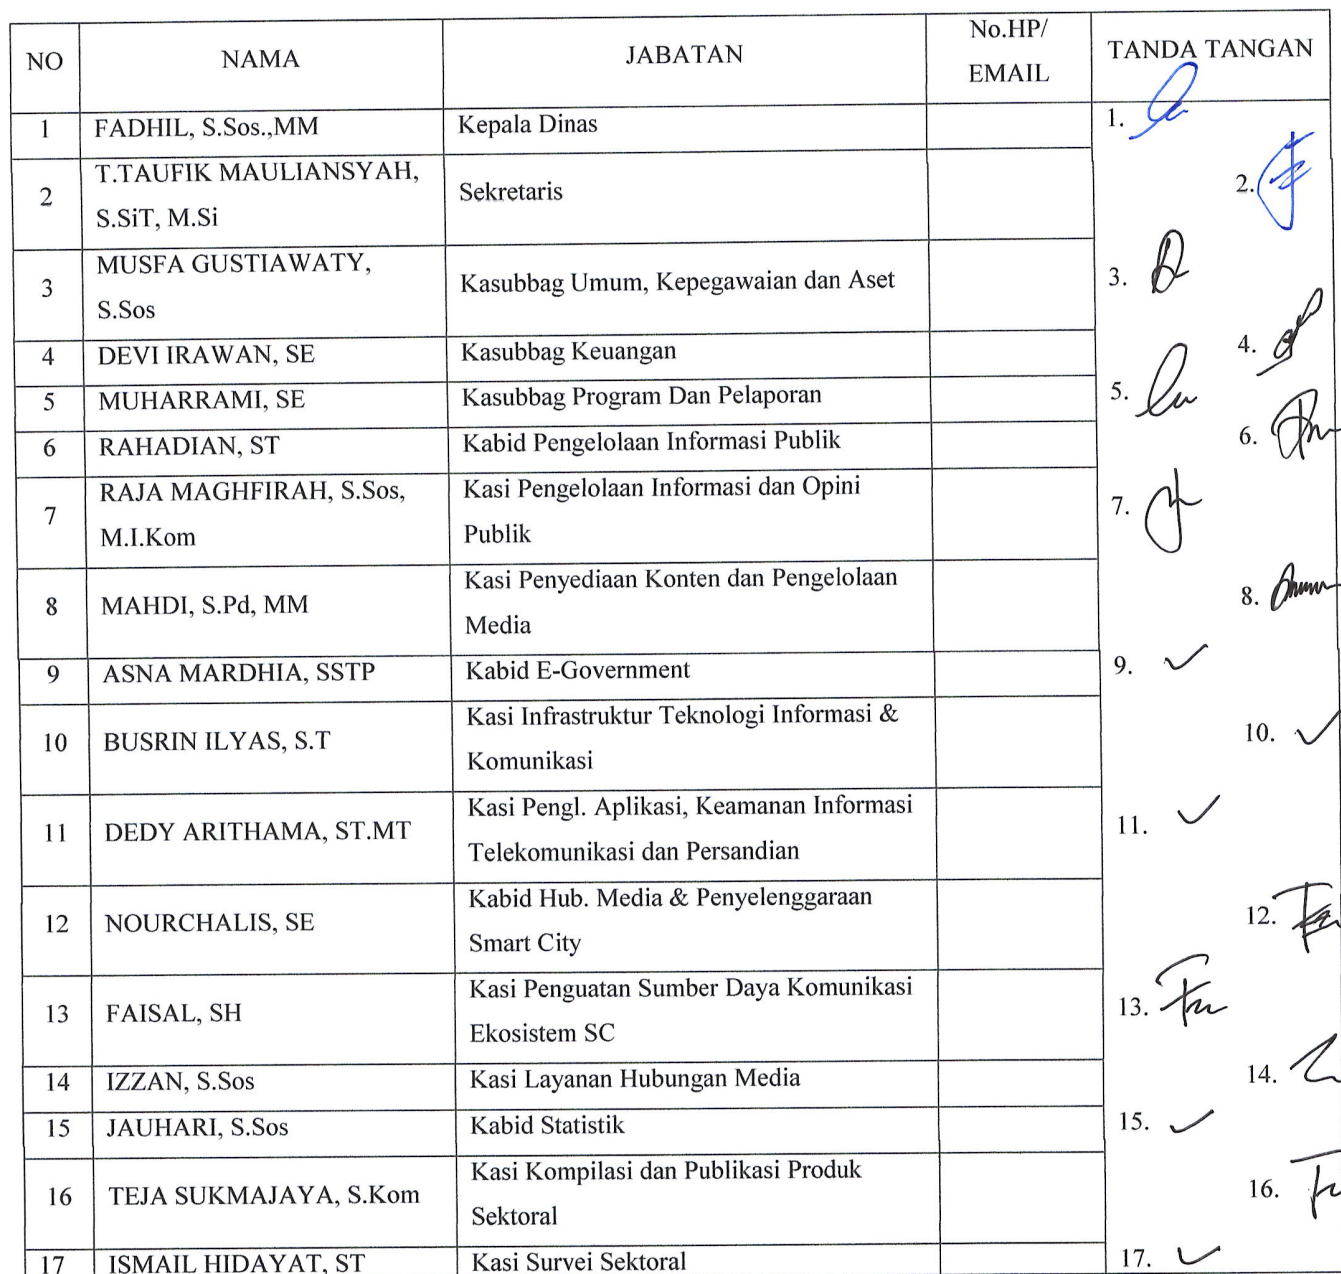 NO NAMA JABATAN No.HP/ EMAIL TANDA TANGAN
1 FADHIL, S.Sos.,MM Kepala Dinas 1.
2 T.TAUFIK MAULIANSYAH, Sekretaris 2.
S.SiT, M.Si
3 MUSFA GUSTIAWATY, Kasubbag Umum, Kepegawaian dan Aset 3.
S.Sos
4 DEVI IRAWAN, SE Kasubbag Keuangan 4.
5 MUHARRAMI, SE Kasubbag Program Dan Pelaporan 5.
6 RAHADIAN, ST Kabid Pengelolaan Informasi Publik 6.
7 RAJA MAGHFIRAH, S.Sos, Kasi Pengelolaan Informasi dan Opini 7.
M.I.Kom Publik
8 MAHDI, S.Pd, MM Kasi Penyediaan Konten dan Pengelolaan 8.
Media
9 ASNA MARDHIA, SSTP Kabid E-Government 9.
10 BUSRIN ILYAS, S.T Kasi Infrastruktur Teknologi Informasi & 10.
Komunikasi
11 DEDY ARITHAMA, ST.MT Kasi Pengl. Aplikasi, Keamanan Informasi 11.
Telekomunikasi dan Persandian
12 NOURCHALIS, SE Kabid Hub. Media & Penyelenggaraan 12.
Smart City
13 FAISAL, SH Kasi Penguatan Sumber Daya Komunikasi 13.
Ekosistem SC
14 IZZAN, S.Sos Kasi Layanan Hubungan Media 14.
15 JAUHARI, S.Sos Kabid Statistik 15.
16 TEJA SUKMAJAYA, S.Kom Kasi Kompilasi dan Publikasi Produk 16.
Sektoral
17 ISMAIL HIDAYAT, ST Kasi Survei Sektoral 17.